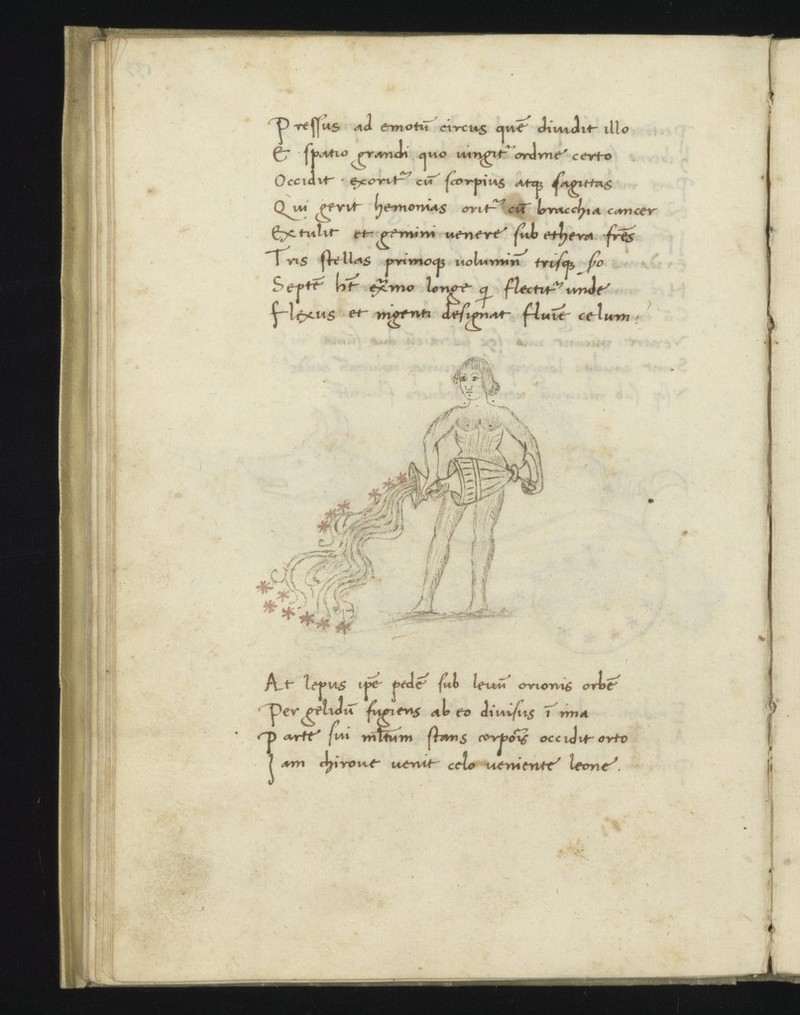 Pressus ad emotū circus quē diuidit illo
E spatio grandi quo uingit᷒ ordine certo
Occidit · exorit᷒ cū scorpius atqꝫ sagittas
Qui gerit hemonias orit᷒ cū bracchia cancer
Extulit et gemini uenere sub ethera frēs
Tris stellas primoqꝫ uolumin̄ trisqꝫ
Septē ht̄ longe flectit᷒ unde
Flexus et ingenti designat fluiē celum
At lepus ip̄e pedē sub leuū orionis orbē
Per gelidū fugiens ab eo diuisus ī ima
Parte sui stans corporis occidit orto
Iam chirone uenit celo ueniente leone.